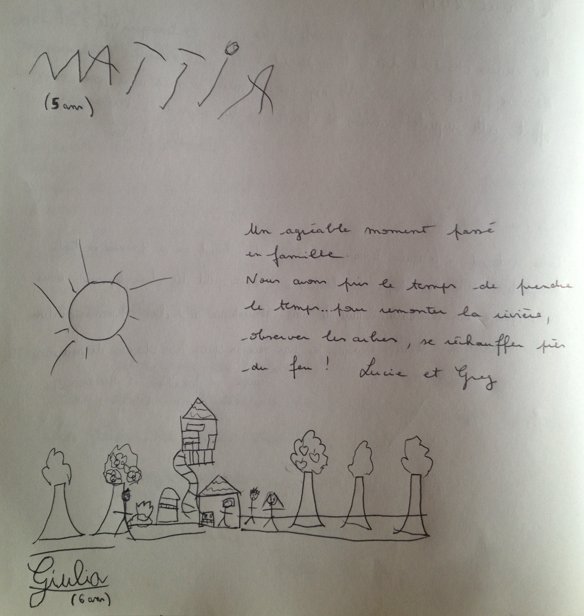 MATTIA
(5 ans)
Un agréable moment passé
en famille.
Nous avons pris le temps de prendre
le temps... pour remonter la rivière,
observer les arbres, se réchauffer près
du feu ! Lucie et Greg
Giulia
(6 ans)